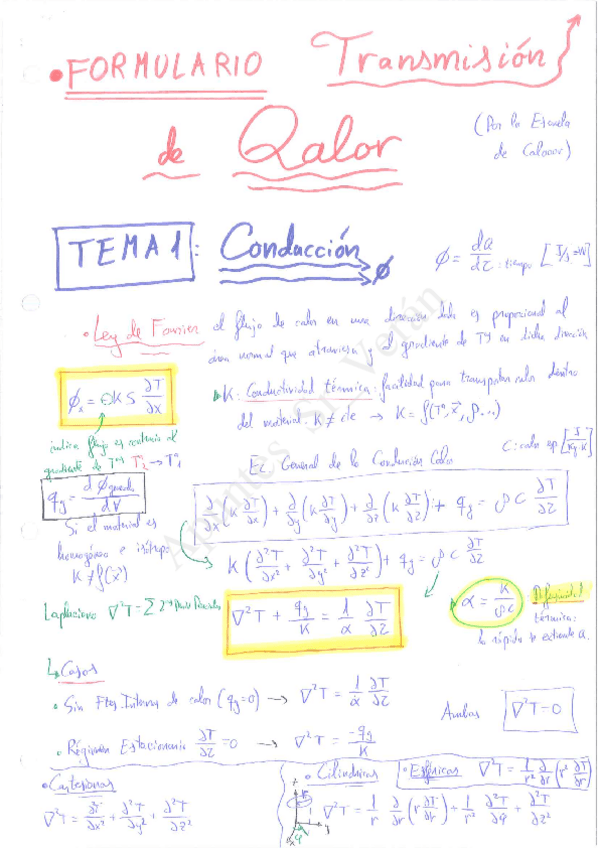 • FORMULARIO Transmisión
de Qalor
(Por la Escuela
de Calooor)
TEMA 1: Conducción
ϕ = da/dτ : tiempo [J/s = W]
• Ley de Fourier el flujo de calor en una dirección dada es proporcional al
área normal que atraviesa y al gradiente de Tª en dicha dirección
ϕx = ⊖KS ∂T/∂x
K: Conductividad térmica: facilidad para transportar calor dentro
del material. K ≠ cte → K = f(Tª, x⃗, ρ...)
indica flujo es contrario al
gradiente de Tª T₂ª → T₁ª
C: calor esp [J/Kg·K]
Ec General de la Conducción Calor
qg = dϕgenerado/dV
∂/∂x (k ∂T/∂x) + ∂/∂y (k ∂T/∂y) + ∂/∂z (k ∂T/∂z) + qg = ρ C ∂T/∂τ
Si el material es
homogéneo e isótropo
K ≠ f(x⃗)
K (∂²T/∂x² + ∂²T/∂y² + ∂²T/∂z²) + qg = ρ C ∂T/∂τ
Laplaciano ∇²T = Σ 2ªs Deriv Parciales
∇²T + qg/K = 1/α ∂T/∂τ
α = K/ρC : Difusividad
térmica:
lo rápido se extiende Q.
↳ Casos
• Sin Ftes. Internas de calor (qg=0) → ∇²T = 1/α ∂T/∂τ
Ambas ∇²T = 0
• Régimen Estacionario ∂T/∂τ = 0 → ∇²T = -qg/K
• Cartesianas
∇²T = ∂²T/∂x² + ∂²T/∂y² + ∂²T/∂z²
• Cilíndricas
∇²T = 1/r ∂/∂r (r ∂T/∂r) + 1/r² ∂²T/∂φ + ∂²T/∂z²
• Esféricas ∇²T = 1/r² ∂/∂r (r² ∂T/∂r)
Apuntes_Sr_Verán